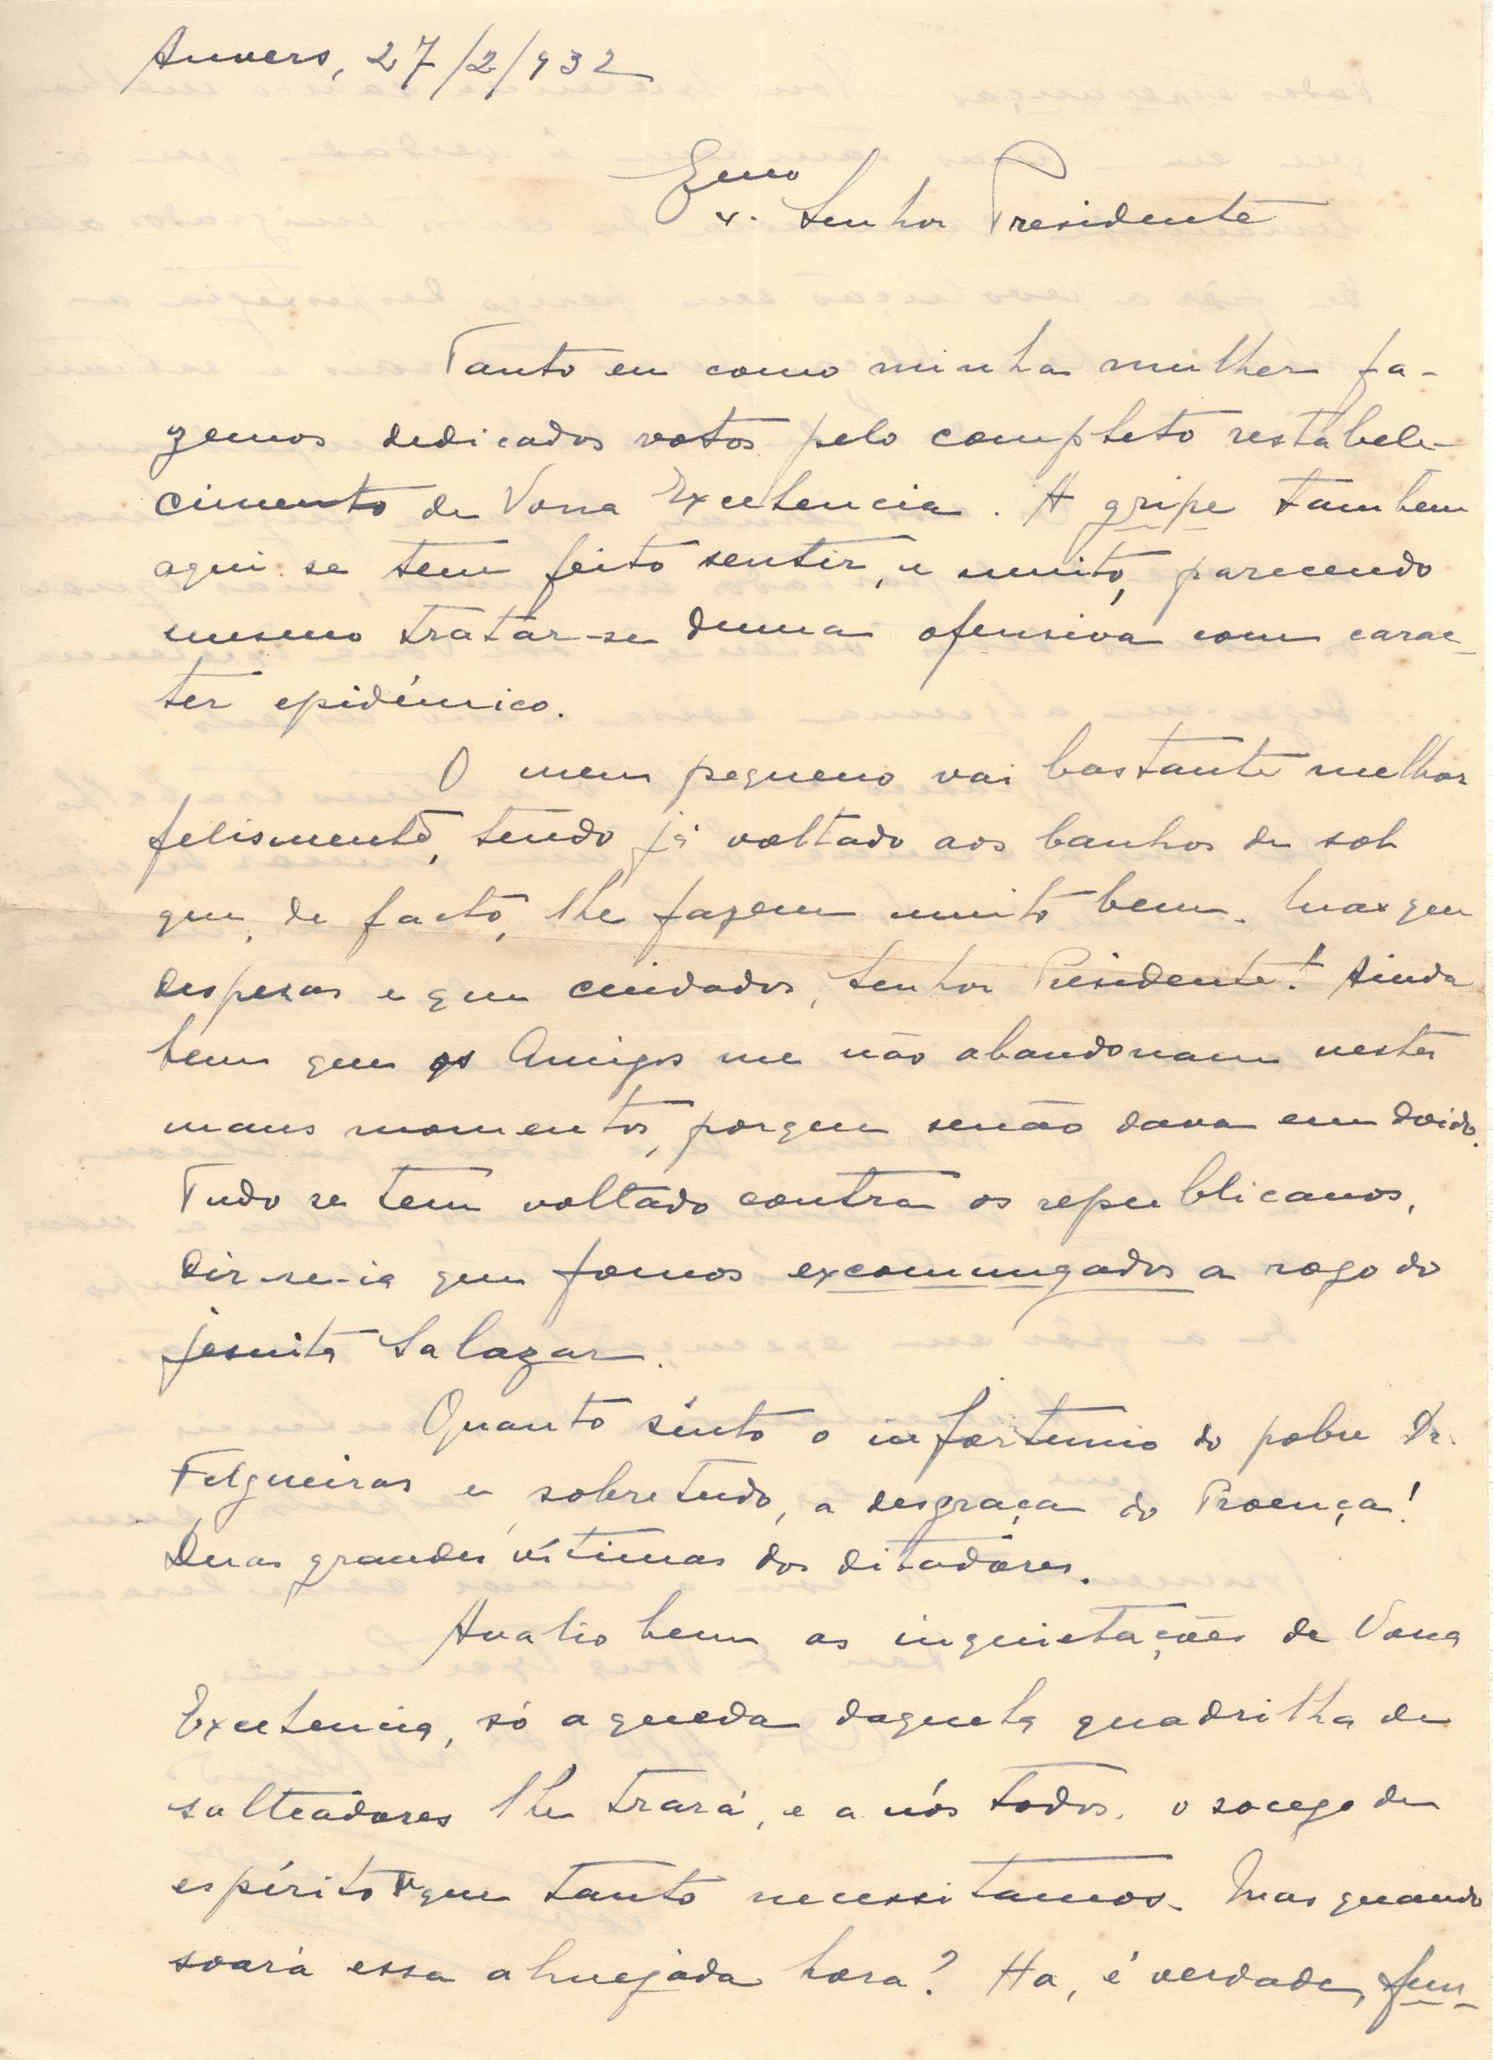 Anvers, 27/2/932
Exmo
Sr. Senhor Presidente
Tanto eu como minha mulher fa-
zemos dedicados votos pelo completo restabele-
cimento de Vossa Excelencia. A gripe tambem
aqui se tem feito sentir, e muito, parecendo
mesmo tratar-se duma ofensiva com carac-
ter epidémico.
O meu pequeno vai bastante melhor
felismente, tendo já voltado aos banhos de sol
que, de facto, lhe fazem muito bem. Mas que
despesas e que cuidados, Senhor Presidente! Ainda
bem que os Amigos me não abandonam nestes
maus momentos, porque senão dava em doido.
Tudo se tem voltado contra os republicanos,
dir-se-ia que fomos excomungados a rogo do
jesuita Salazar.
Quanto sinto o infortunio do pobre Dr.
Felgueiras e, sobretudo, a desgraça do Proença!
Duas grandes vítimas dos ditadores.
Avalio bem as inquietações de Vossa
Excelencia, só a queda daquela quadrilha de
salteadores lhe trará, e a nós todos, o socego de
espírito que tanto necessitamos. Mas quando
soará essa almejada hora? Ha, é verdade, fun-